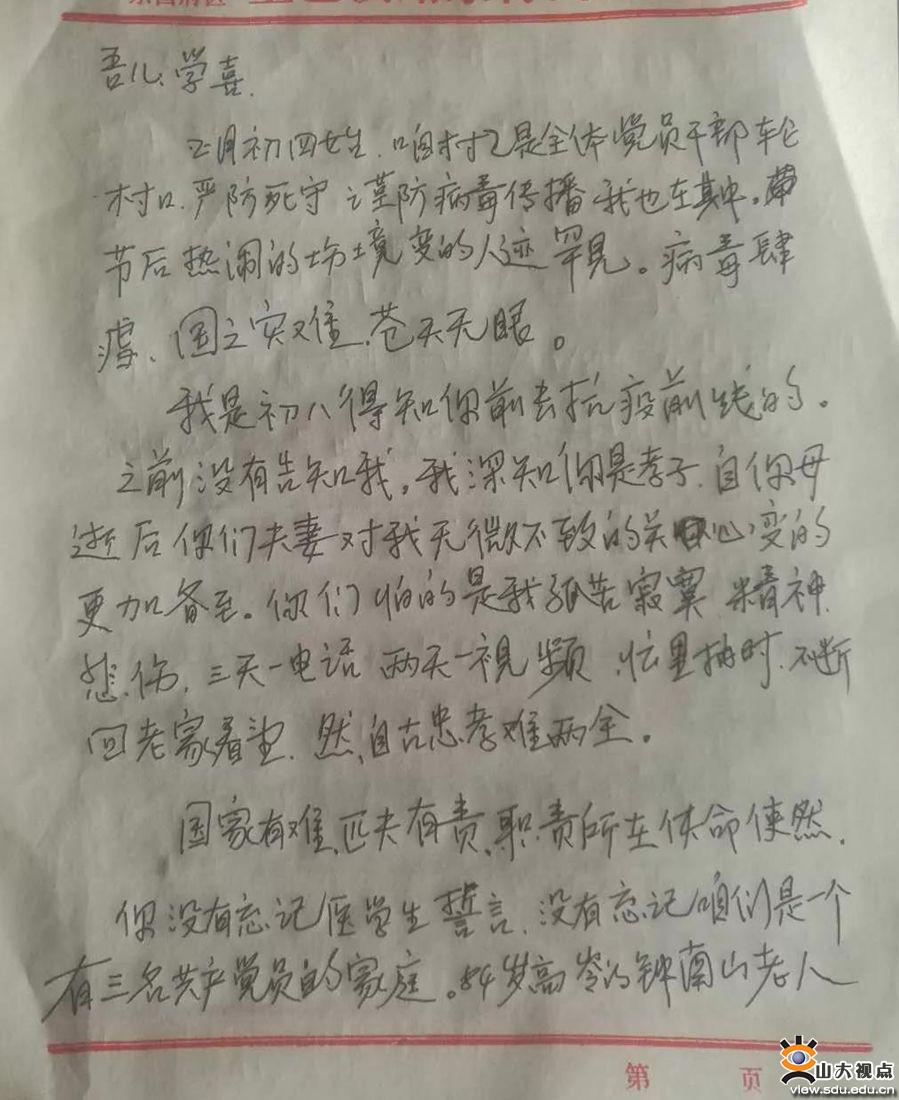 吾儿:学喜.
正月初四始.咱村也是全体党员干部轮
村口.严防死守谨防病毒传播我也在其中。
节后热闹的场境变的人迹罕见。病毒肆
虐、国之灾难.苍天无眼。
我是初八得知你前去抗疫前线的。
之前没有告知我。我深知你是孝子.自你母
逝后你们夫妻对我无微不致的关心变的
更加备至。你们怕的是我孤苦寂寞精神
悲伤.三天一电话两天一视频.忙里抽时.不断
回老家看望.然,自古忠孝难两全。
国家有难,匹夫有责,职责所在使命使然.
你没有忘记医学生誓言.没有忘记咱们是一个
有三名共产党员的家庭。84岁高岺的钟南山老人
第 页
山大视点
view.sdu.edu.cn